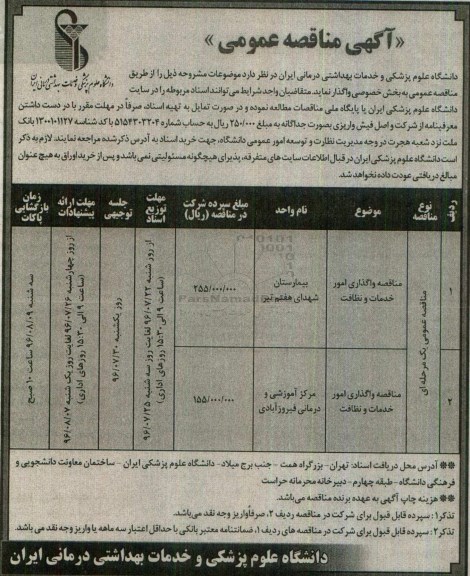 «آگهی مناقصه عمومی»
دانشگاه علوم پزشکی و خدمات بهداشتی درمانی ایران
دانشگاه علوم پزشکی و خدمات بهداشتی درمانی ایران در نظر دارد موضوعات مشروحه ذیل را از طریق
مناقصه عمومی به بخش خصوصی واگذار نماید. متقاضیان واجد شرایط می توانند اسناد مربوطه را در سایت
دانشگاه علوم پزشکی ایران یا پایگاه ملی مناقصات مطالعه نموده و در صورت تمایل به تهیه اسناد، صرفاً در مهلت مقرر با در دست داشتن
معرفینامه از شرکت و اصل فیش واریزی بصورت جداگانه به مبلغ ۲۵۰/۰۰۰ ریال به حساب شماره ۵۱۵۴۳۰۳۲۰۴ با کد شناسه ۱۳۰۰۱۰۱۱۲۷ بانک
ملت نزد شعبه هجرت در وجه مدیریت نظارت و توسعه امور عمومی دانشگاه، جهت خرید اسناد به آدرس ذکر شده مراجعه نمایند. لازم به ذکر
است دانشگاه علوم پزشکی ایران در قبال اطلاعات سایت های متفرقه، پذیرای هیچگونه مسئولیتی نمی باشد و پس از خرید اوراق به هیچ عنوان
مبالغ دریافتی عودت داده نخواهد شد.
ردیف
نوع مناقصه
موضوع
نام واحد
مبلغ سپرده شرکت در مناقصه (ریال)
مهلت توزیع اسناد
جلسه توجیهی
مهلت ارائه پیشنهادات
زمان بازگشایی پاکات
۱
مناقصه عمومی یک مرحله ای
مناقصه واگذاری امور خدمات و نظافت
بیمارستان شهدای هفتم تیر
۲۵۵/۰۰۰/۰۰۰
از روز شنبه ۹۶/۰۷/۲۲ لغایت روز سه شنبه ۹۶/۰۷/۲۵
(ساعت ۹ الی ۱۵:۳۰ روزهای اداری)
روز یکشنبه ۹۶/۰۷/۳۰
از روز چهارشنبه ۹۶/۰۷/۲۶ لغایت روز یک شنبه ۹۶/۰۸/۰۷
(ساعت ۹ الی ۱۵:۳۰ روزهای اداری)
سه شنبه ۹۶/۰۸/۰۹ ساعت ۱۰ صبح
۲
مناقصه واگذاری امور خدمات و نظافت
مرکز آموزشی و درمانی فیروزآبادی
۱۵۵/۰۰۰/۰۰۰
** آدرس محل دریافت اسناد: تهران - بزرگراه همت - جنب برج میلاد - دانشگاه علوم پزشکی ایران - ساختمان معاونت دانشجویی و
فرهنگی دانشگاه - طبقه چهارم - دبیرخانه محرمانه حراست
** هزینه چاپ آگهی به عهده برنده مناقصه می باشد.
تذکر۱: سپرده قابل قبول برای شرکت در مناقصه ردیف ۲، صرفاً واریز وجه نقد می باشد.
تذکر۲: سپرده قابل قبول برای شرکت در مناقصه های ردیف ۱، ضمانتنامه معتبر بانکی با حداقل اعتبار سه ماهه یا واریز وجه نقد می باشد.
دانشگاه علوم پزشکی و خدمات بهداشتی درمانی ایران